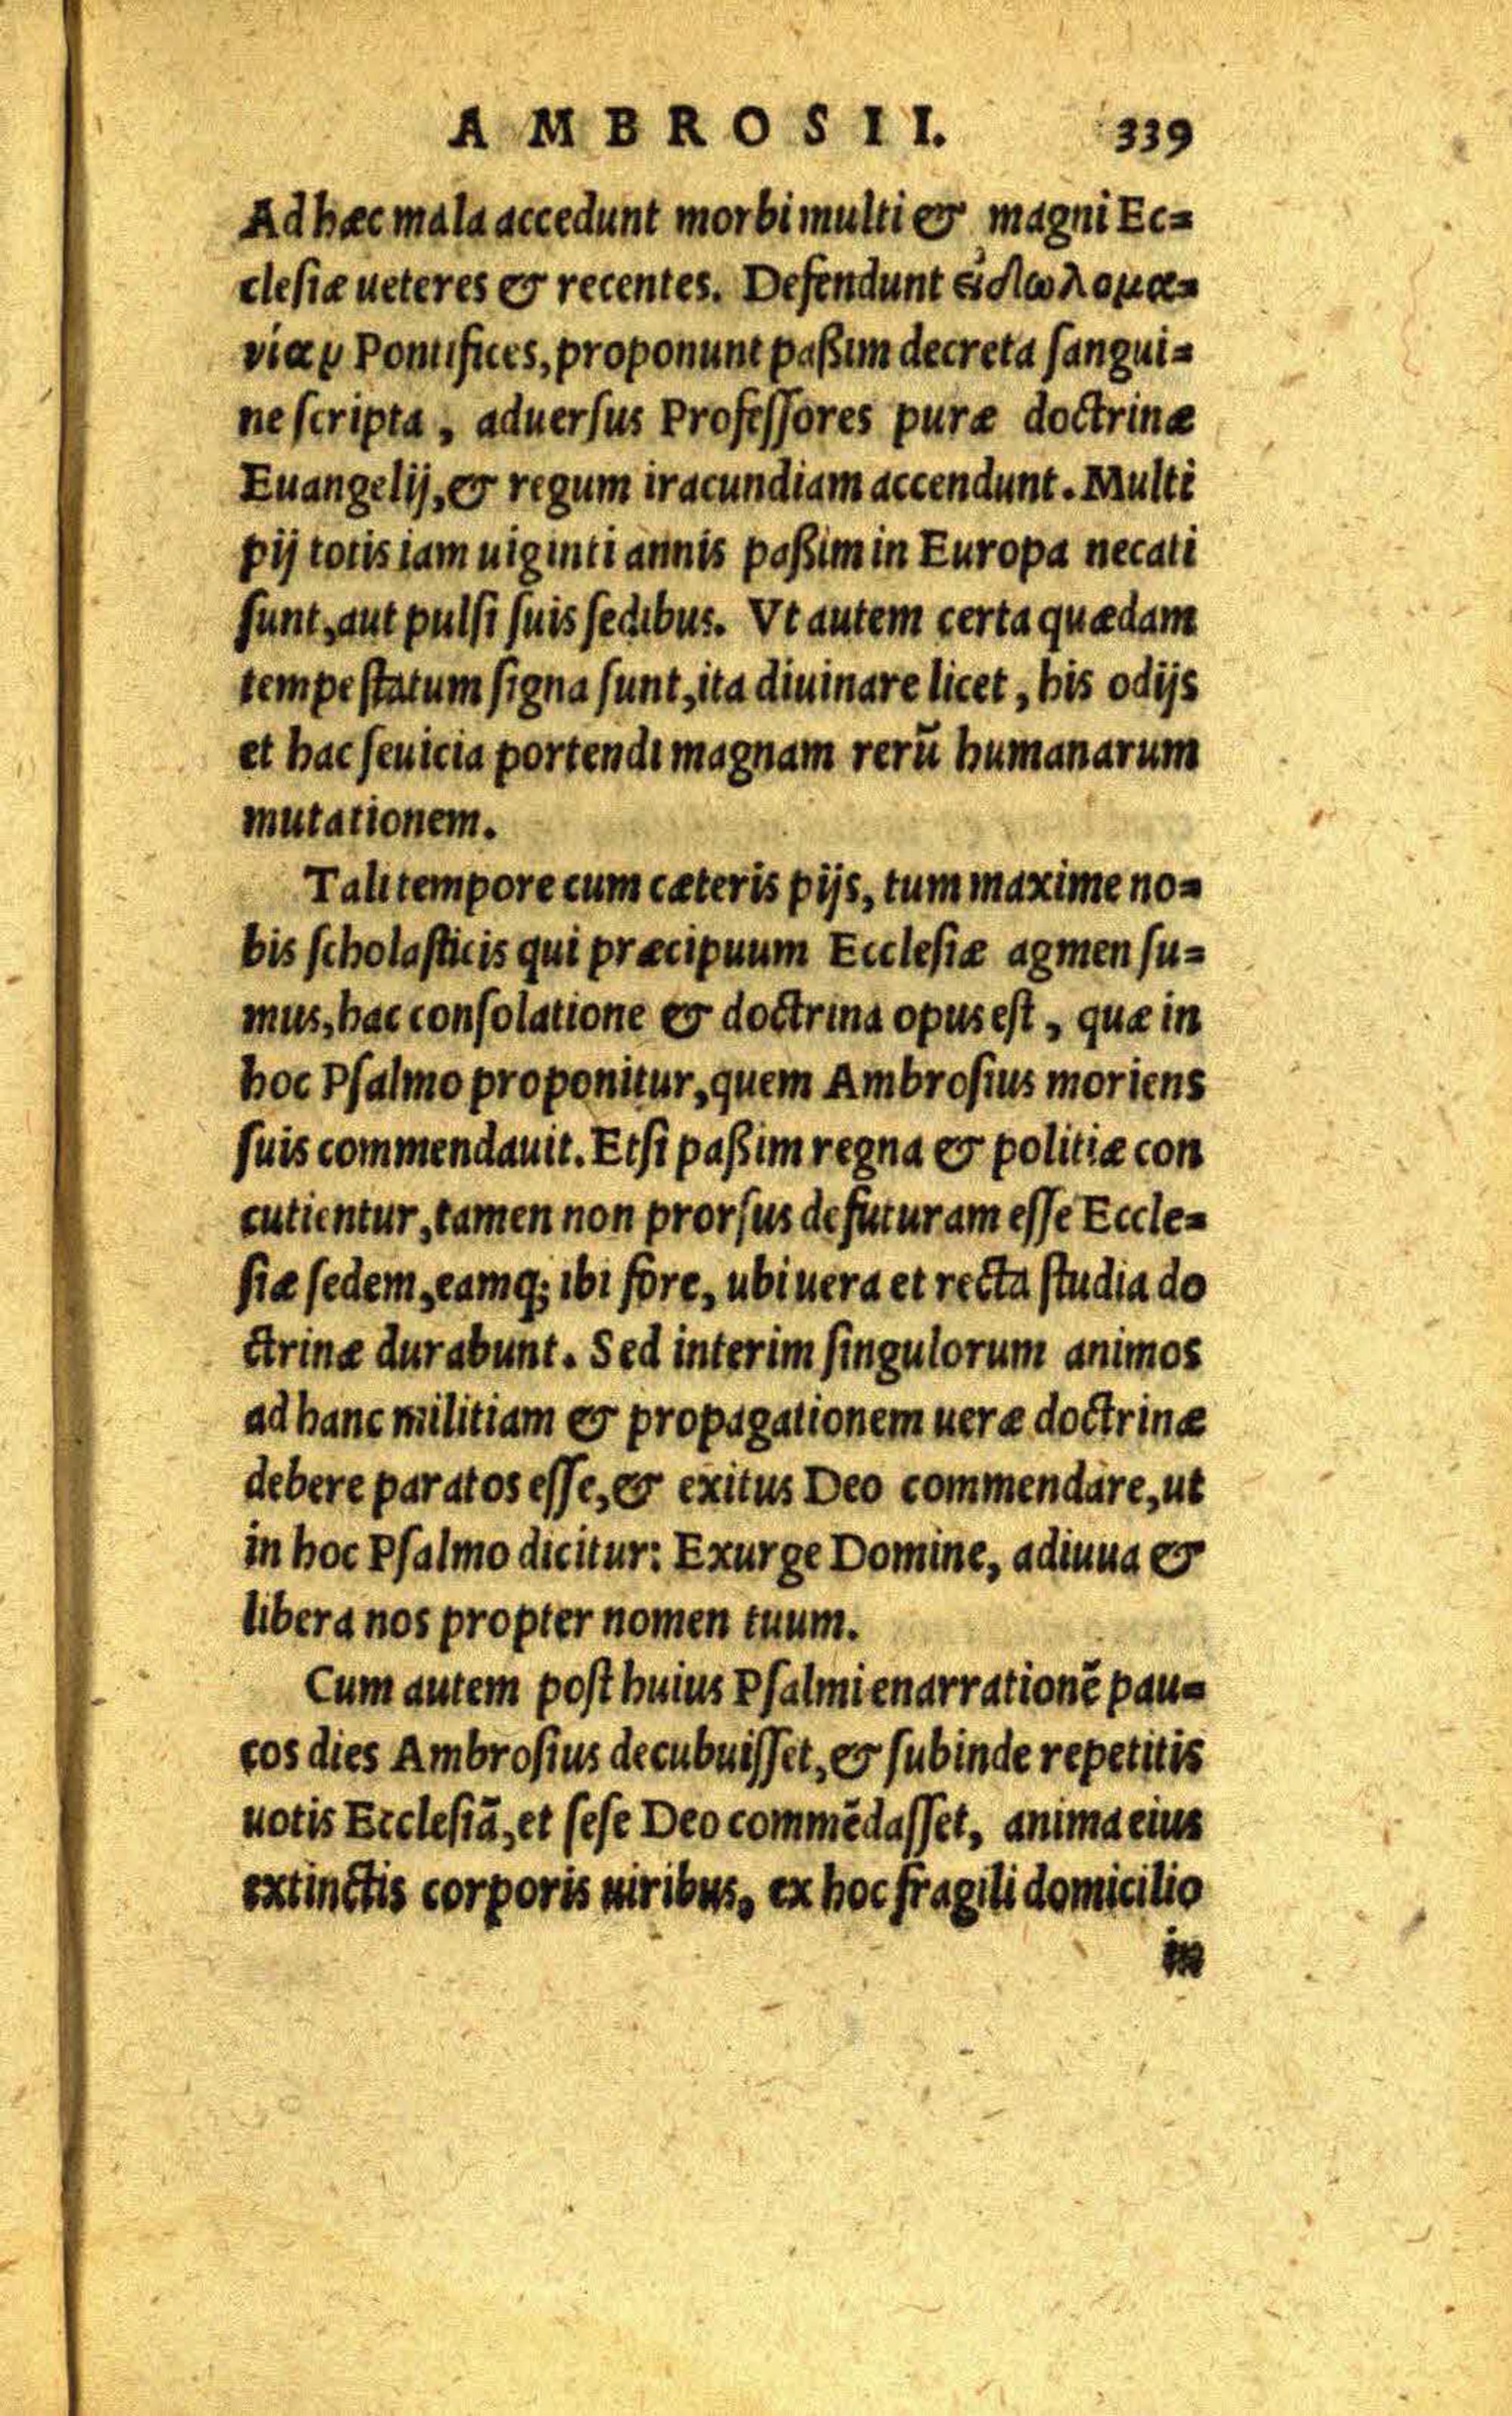 AMBROSII. 339
Ad hæc mala accedunt morbi multi & magni Ec=
clesiæ ueteres & recentes. Defendunt εἰδωλομα=
νίαν Pontifices, proponunt paßim decreta sangui=
ne scripta, aduersus Professores puræ doctrinæ
Euangelij, & regum iracundiam accendunt. Multi
pij totis iam uiginti annis paßim in Europa necati
sunt, aut pulsi suis sedibus. Vt autem certa quædam
tempestatum signa sunt, ita diuinare licet, his odijs
et hac seuicia portendi magnam rerū humanarum
mutationem.
Tali tempore cum cæteris pijs, tum maxime no=
bis scholasticis qui præcipuum Ecclesiæ agmen su=
mus, hac consolatione & doctrina opus est, quæ in
hoc Psalmo proponitur, quem Ambrosius moriens
suis commendauit. Etsi paßim regna & politiæ con
cutientur, tamen non prorsus defuturam esse Eccle=
siæ sedem, eamq; ibi fore, ubi uera et recta studia do
ctrinæ durabunt. Sed interim singulorum animos
ad hanc militiam & propagationem ueræ doctrinæ
debere paratos esse, & exitus Deo commendare, ut
in hoc Psalmo dicitur: Exurge Domine, adiuua &
libera nos propter nomen tuum.
Cum autem post huius Psalmi enarrationē pau=
cos dies Ambrosius decubuisset, & subinde repetitis
uotis Ecclesiā, et sese Deo commēdasset, anima eius
extinctis corporis uiribus, ex hoc fragili domicilio
in